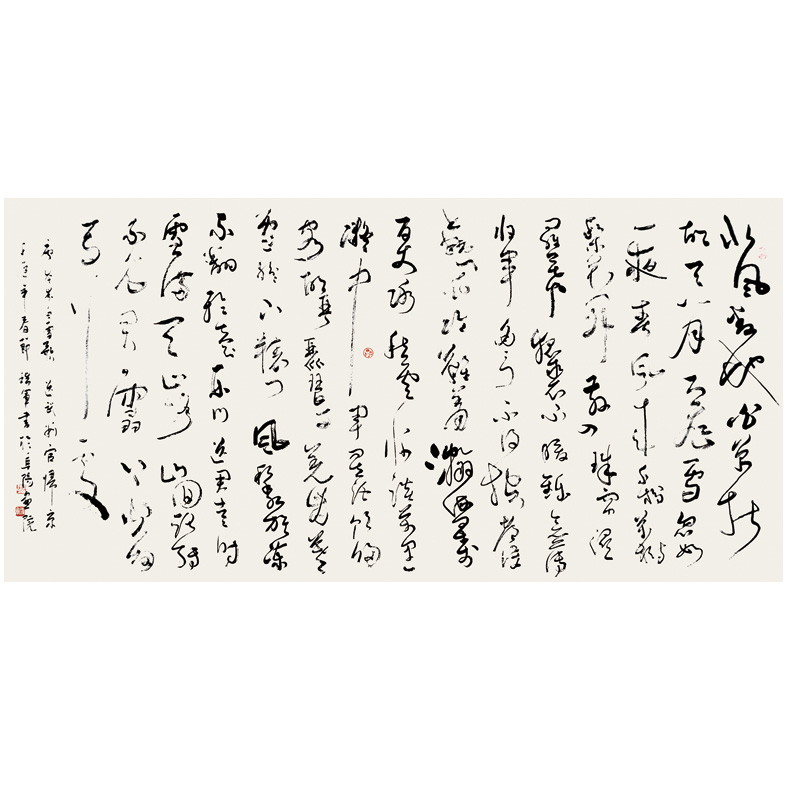 北風卷地白草折
胡天八月即飛雪忽如
一夜春風來千樹萬樹
梨花開散入珠簾濕
羅幕狐裘不暖錦衾薄
將軍角弓不得控都護
鐵衣冷難着瀚海闌干
百丈冰愁雲慘淡萬里
凝中軍置酒飲歸
客胡琴琵琶與羌笛暮
雪紛下轅門風掣紅旗凍
不翻輪臺東門送君去時
雪滿天山路山迴路轉
不見君雪上空留
馬行處
唐岑參白雪歌送武判官歸京
年春節 軍書於阜陽畫院